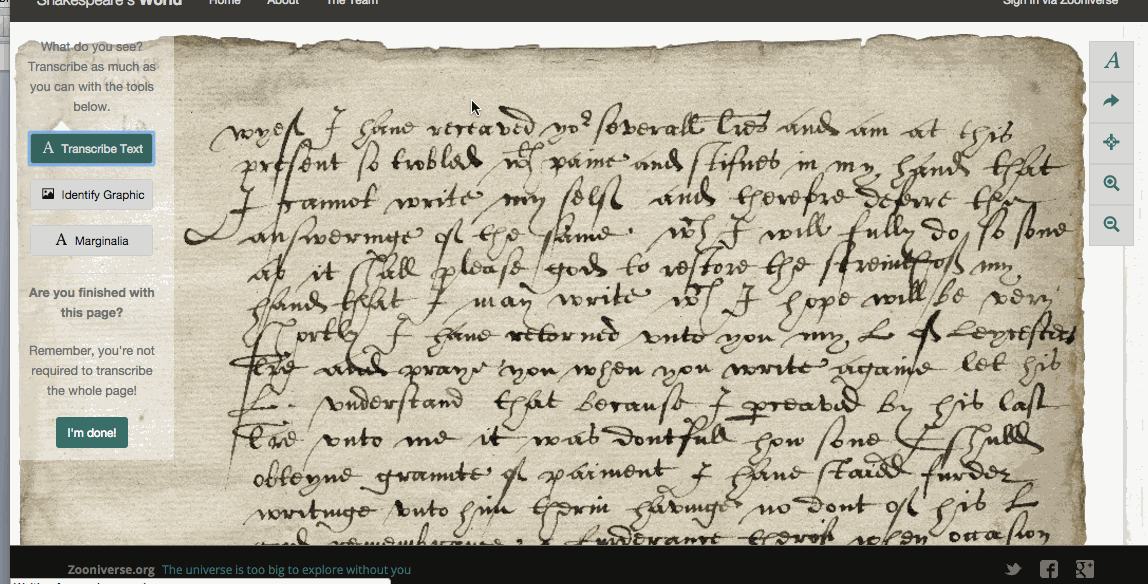 Shakespeare's World
Home
About
The Team
Sign in via Zooniverse
What do you see?
Transcribe as much as
you can with the tools
below.
A Transcribe Text
Identify Graphic
A Marginalia
Are you finished with
this page?
Remember, you're not
required to transcribe
the whole page!
I'm done!
A
wyef I haue receaved yor severall lres and am at this
present so trobled wth paine and stifnes in my hand that
I cannot write my self and therefore desire the
answeringe of the same wch I will fully do so sone
as it shall please god to restore the streingth of my
hand that I may write wch I hope will be very
shortly I haue retorned vnto you my L of Leycesters
lre and praye you when you write againe let his
L. vnderstand that because I pceaved by his last
lre vnto me it was dontfull how sone I shuld
obteyne graunte of paiment I haue staied furder
writinge vnto him therin havinge no dont of his L
and remembrance furderance therof when occasion
Zooniverse.org The universe is too big to explore without you